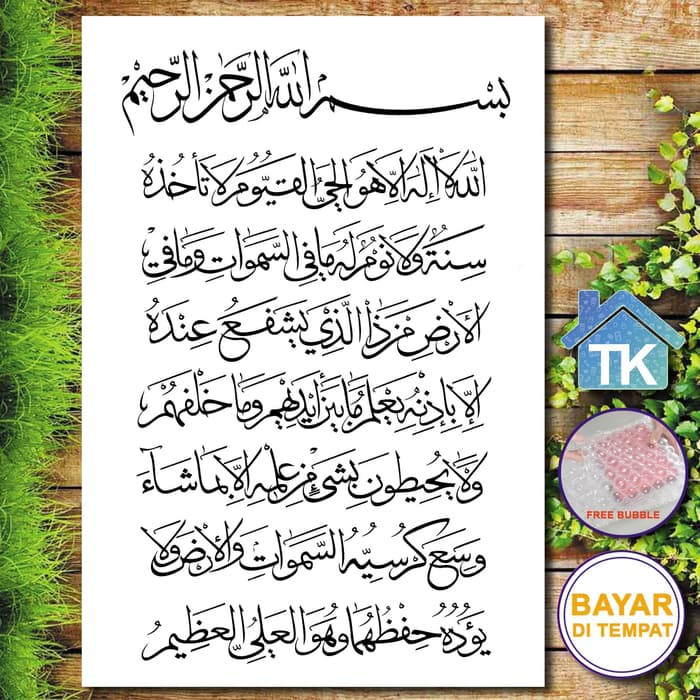 بسم الله الرحمن الرحيم
الله لا إله إلا هو الحي القيوم لا تأخذه
سنة ولا نوم له ما في السموات وما في
الأرض من ذا الذي يشفع عنده
إلا بإذنه يعلم ما بين أيديهم وما خلفهم
ولا يحيطون بشيء من علمه إلا بما شاء
وسع كرسيه السموات والأرض ولا
يؤده حفظهما وهو العلي العظيم
TK
FREE BUBBLE
BAYAR
DI TEMPAT